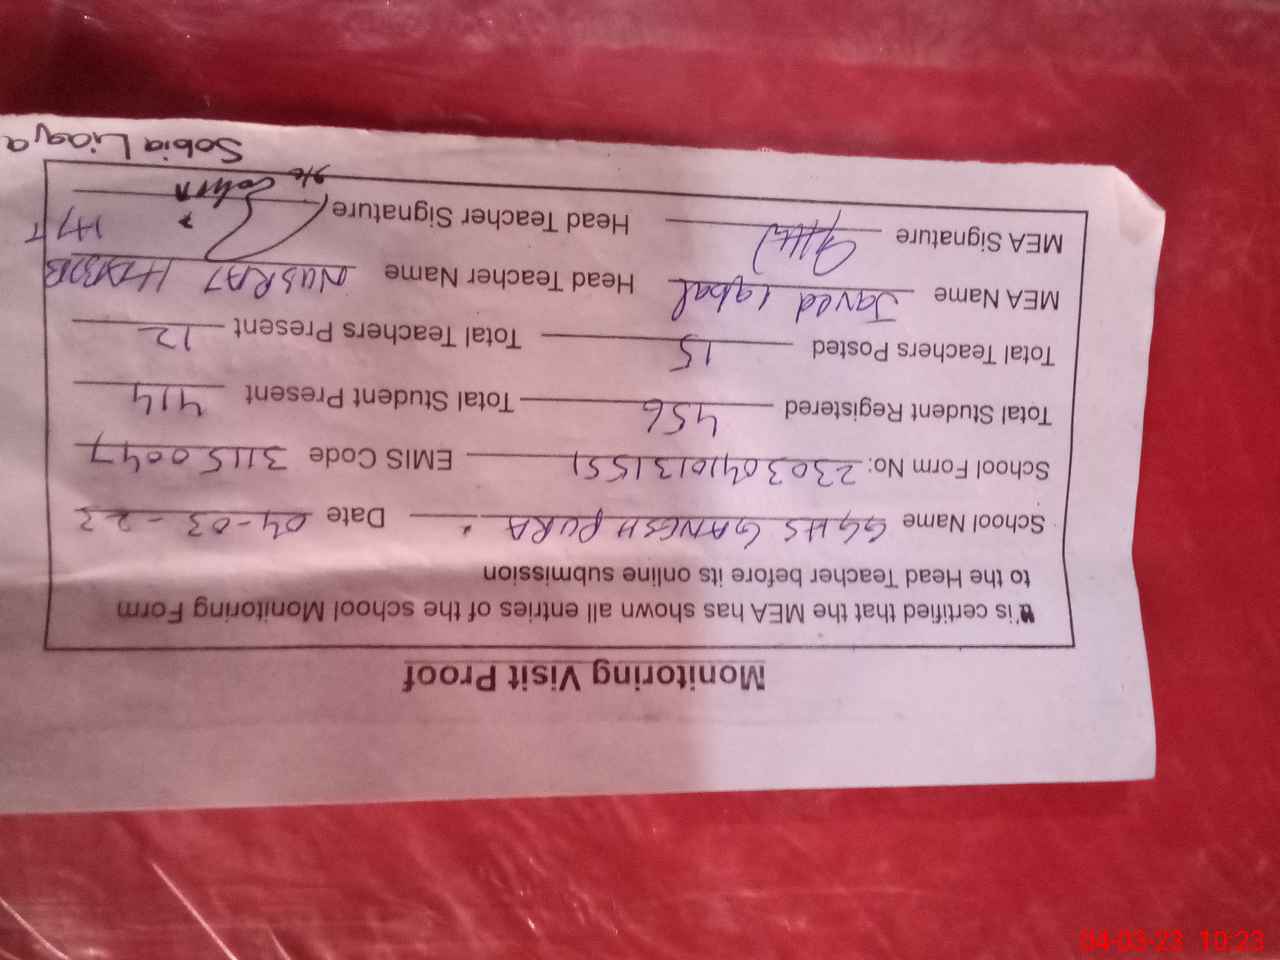 Monitoring Visit Proof
is certified that the MEA has shown all entries of the school Monitoring Form
to the Head Teacher before its online submission
School Name GGHS GANESH PURA Date 04-03-23
School Form No: 23030410131551 EMIS Code 31150047
Total Student Registered 456 Total Student Present 414
Total Teachers Posted 15 Total Teachers Present 12
MEA Name Javed Iqbal Head Teacher Name NUSRAT
MEA Signature Head Teacher Signature
Sobia Liaqa
04-03-23 10:23